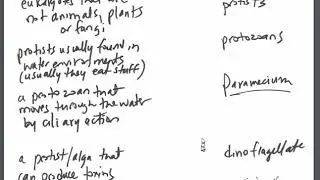 eukaryotes that are
not animals, plants
or fungi
protists
protists usually found in
water environments
(usually they eat stuff)
protozoans
a protozoan that
moves through the water
by ciliary action
Paramecium
a protist/alga that
can produce toxins
dinoflagellate